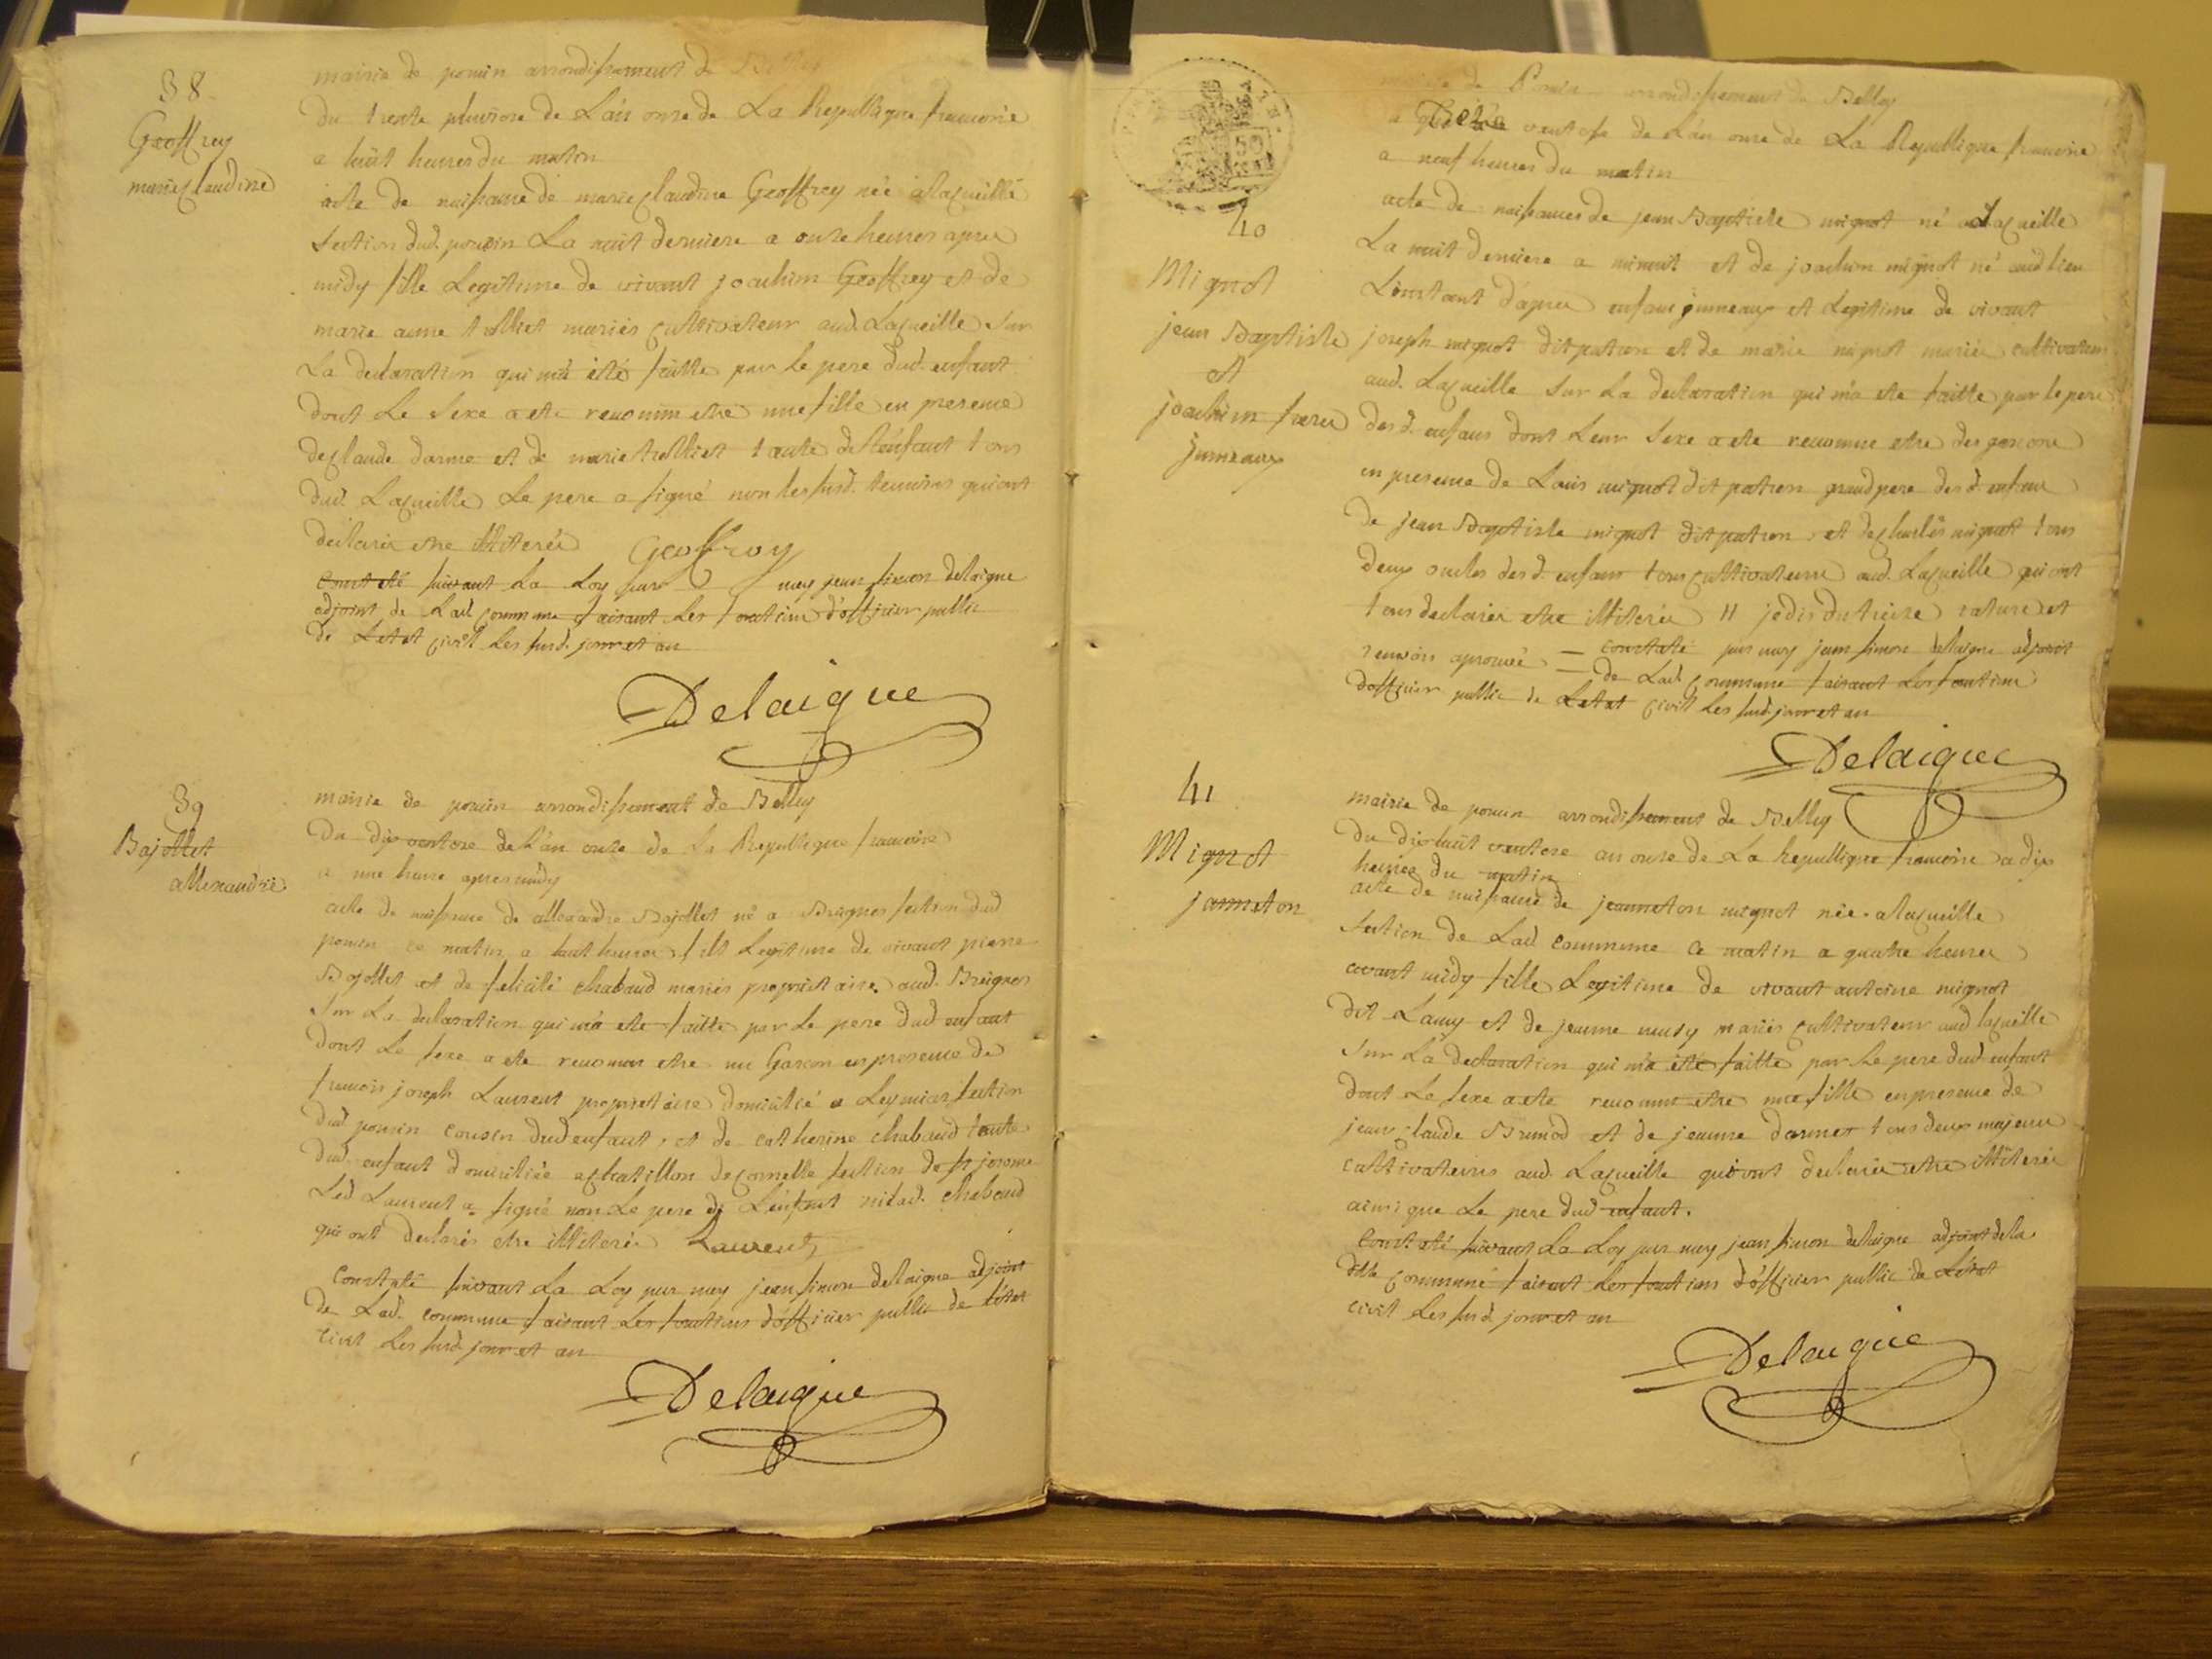 38
Geoffrey
marie Claudine
mairie de poncin arrondissement de Belley
Du trente pluviose de L'an onze de La Republique francoise
a huit heures du matin
acte de naissance de marie Claudine Geoffrey née a Lacueille
Section dud. poncin La nuit derniere a onze heures apres
midy fille Legitime de vivant joachim Geoffrey et de
marie anne trolliet mariés cultivateur aud. Lacueille sur
La declaration qui m'a été faitte par le pere dud. enfant
dont Le Sexe a eté reconnu etre une fille en presence
de Claude darme et de marie trolliet tante de l'enfant tous
dud. Lacueille Le pere a signé non les susd. temoins qui ont
declaré etre illiterés Geoffroy
Constaté suivant La Loy par moy jean simon delaigue
adjoint de Lad. commune faisant Les fonctions d'officier public
de Letat civil Les susd. jour et an
Delaigue
39
Bajollet
allexandre
mairie de poncin arrondissement de Belley
Du dix ventose de L'an onze de La Republique francoise
a une heure apres midy
acte de naissance de allexandre Bajollet né a Breignes section dud
poncin ce matin a huit heures fils Legitime de vivant pierre
Bajollet et de felicité chabaud mariés propriétaires aud. Breignes
Sur La declaration qui m'a ete faitte par Le pere dud enfant
dont Le sexe a ete reconnu etre un Garcon en presence de
francois joseph Laurent proprietaire domicilié a Leymiat section
dud. poncin cousin dud enfant, et de catherine chabaud tante
dud. enfant domiciliée a chatillon de cornelle section de st jerome
Led Laurent a signé non Le pere de L'enfant ni lad. chabaud
qui ont declarés etre illiterés Laurent
Constaté suivant La Loy par moy jean simon delaigue adjoint
de Lad. commune faisant Les fonctions d'officier public de L'état
civil Les susd. jour et an
Delaigue
40
Mignot
jean Baptiste
et
joachim freres
jumeaux
mairie de Poncin arrondissement de Belley
ventose de L'an onze de La Republique francoise
a neuf heures du matin
acte de naissances de jean Baptiste mignot né a Lacueille
La nuit derniere a minuit et de joachim mignot né aud lieu
L'instant d'apres enfans jumeaux et Legitime de vivant
joseph mignot dit patron et de marie mignot mariés cultivateurs
aud. Lacueille Sur La declaration qui m'a ete faitte par le pere
desd. enfans dont Leur Sexe a ete reconnu etre des garcons
en presence de Louis mignot dit patron grand pere desd. enfans
de jean Baptiste mignot dit patron, et de charles mignot tous
deux oncles desd. enfans tous cultivateurs aud. Lacueille qui ont
tous declarés etre illiterés // je dis du treize rature et
renvois aprouvé = constaté par moy jean simon delaigue adjoint
= de Lad. commune faisant Les fonctions
d'officier public de Letat civil Les susd. jour et an
Delaigue
41
Mignot
janneton
mairie de poncin arrondissement de Belley
Du dix huit ventose an onze de La Republique francoise a dix
heures du matin
acte de naissance de jeanneton mignot née a Lacueille
Section de Lad commune ce matin a quatre heures
avant midy fille Legitime de vivant antoine mignot
dit Lamy et de jeanne musy mariés cultivateur aud lacueille
Sur La declaration qui m'a été faitte par Le pere dud enfant
dont Le sexe a ete reconnu etre une fille en presence de
jean claude Brunod et de jeanne darmet tous deux majeurs
cultivateurs aud. Lacueille qui ont declarés etre illiterés
ainsi que Le pere dud enfant.
Constaté suivant La Loy par moy jean simon delaigue adjoint de la
ditte commune faisant Les fonctions d'officier public de L'état
civil Les susd. jour et an
Delaigue